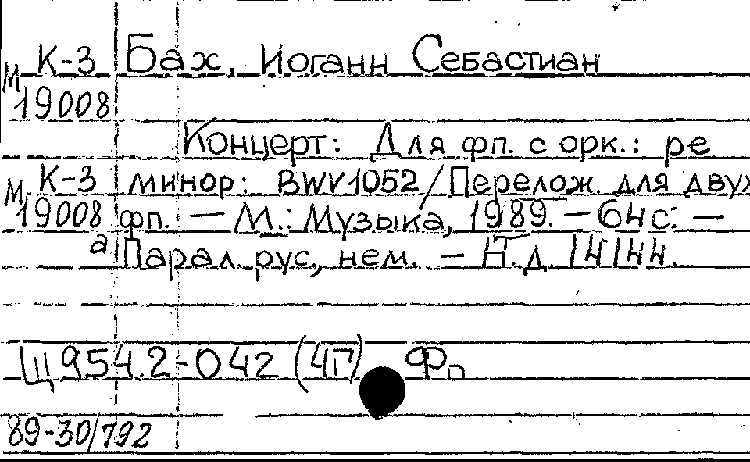 К-3 Бах, Иоганн Себастиан
М 19008
Концерт: Для фп. с орк.: ре
М К-3 минор: BWV1052/Перелож. для двух
19008 фп. — М.: Музыка, 1989. — 64с. —
а Парал. рус., нем. — Н.д. 14144.
Щ954.2-042 (4Г) Фп
89-30/792